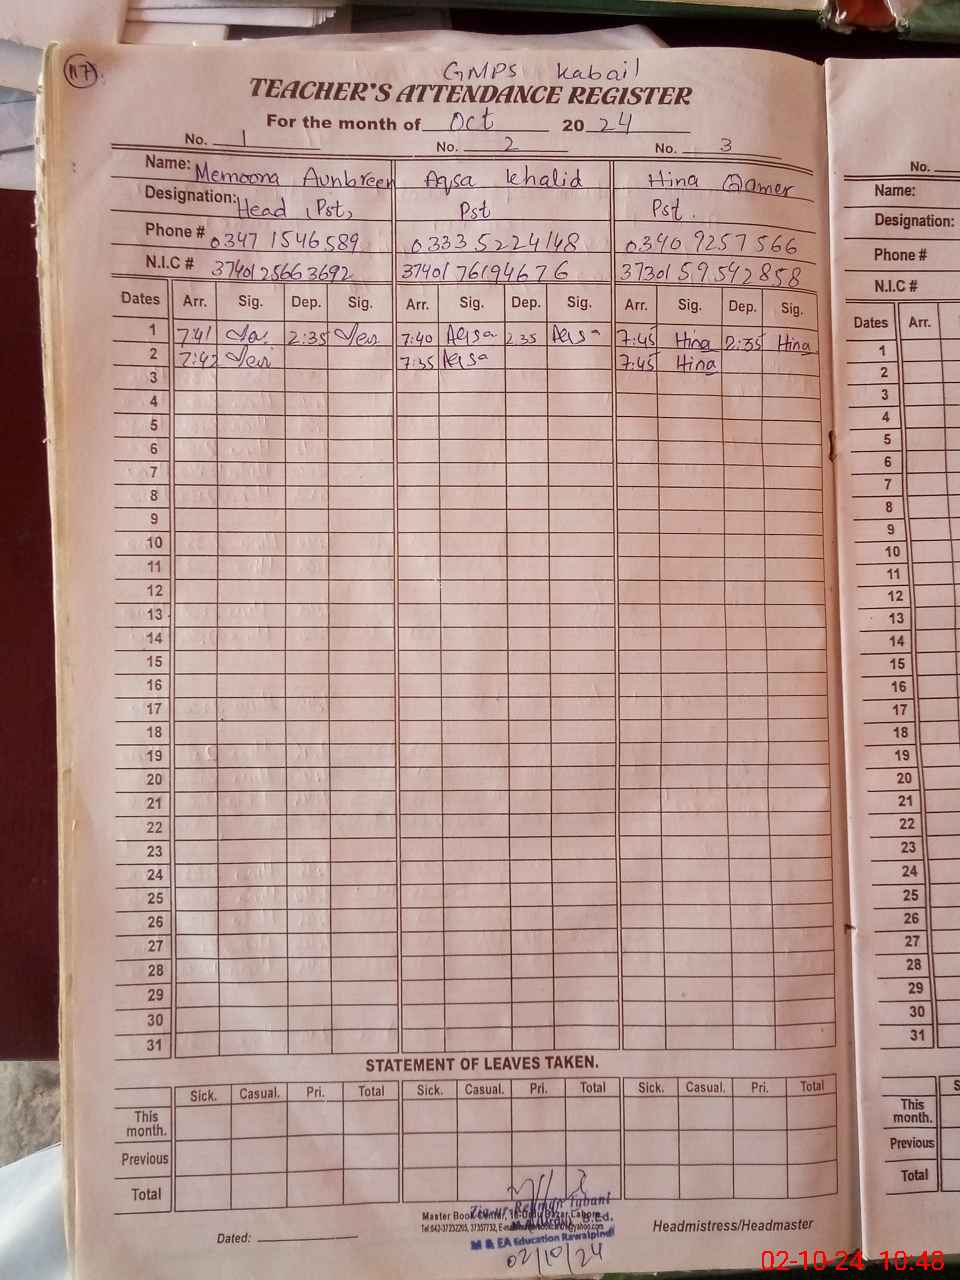 117
GMPS Kabail
TEACHER'S ATTENDANCE REGISTER
For the month of Oct 20 24
No. 1 No. 2 No. 3
Name: Memoona Aunbreen Aqsa Khalid Hina Qamer
Designation: Head (Pst) Pst Pst.
Phone # 0347 1546589 0333 5224148 0340 9257566
N.I.C # 3740125663692 3740176194676 3730159542858
Dates Arr. Sig. Dep. Sig. Arr. Sig. Dep. Sig. Arr. Sig. Dep. Sig.
1 7:41 2:35 7:40 Aqsa 2 35 Aqsa 7:45 Hina 2:35 Hina
2 7:42 7:35 Aqsa 7:45 Hina
3
4
5
6
7
8
9
10
11
12
13
14
15
16
17
18
19
20
21
22
23
24
25
26
27
28
29
30
31
STATEMENT OF LEAVES TAKEN.
Sick. Casual. Pri. Total Sick. Casual. Pri. Total Sick. Casual. Pri. Total
This
month.
Previous
Total
Zia-ur-Rehman
Master Book Center,
B.Ed.
M & EA Education Rawalpindi
02/10/24
Dated:
Headmistress/Headmaster
No.
Name:
Designation:
Phone #
N.I.C #
Dates Arr.
1
2
3
4
5
6
7
8
9
10
11
12
13
14
15
16
17
18
19
20
21
22
23
24
25
26
27
28
29
30
31
This
month.
Previous
Total
02-10-24 10:48